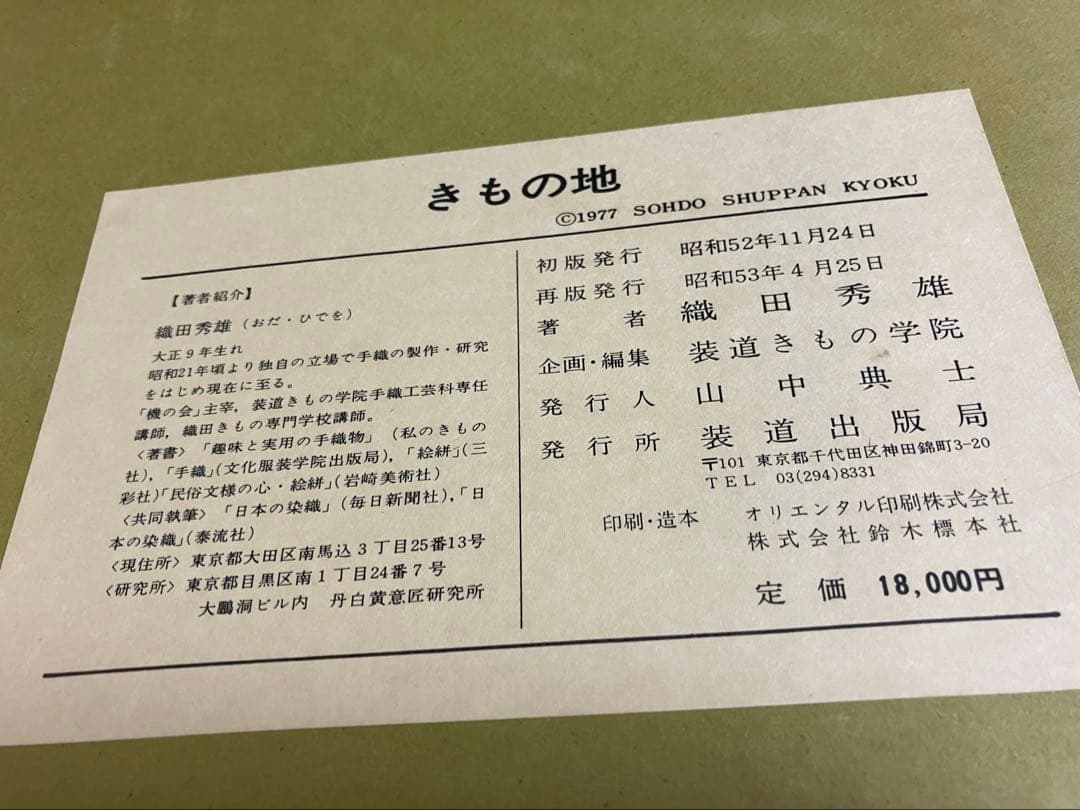 きもの地
©1977 SOHDO SHUPPAN KYOKU
【著者紹介】
織田秀雄（おだ・ひでを）
大正9年生れ
昭和21年頃より独自の立場で手織の製作・研究
をはじめ現在に至る。
「機の会」主宰，装道きもの学院手織工芸科専任
講師，織田きもの専門学校講師。
〈著書〉「趣味と実用の手織物」（私のきもの
社），「手織」（文化服装学院出版局），「絵絣」（三
彩社）「民俗文様の心・絵絣」（岩崎美術社）
〈共同執筆〉「日本の染織」（毎日新聞社），「日
本の染織」（泰流社）
〈現住所〉東京都大田区南馬込3丁目25番13号
〈研究所〉東京都目黒区南1丁目24番7号
大鵬洞ビル内　丹白黄意匠研究所
初版発行　昭和52年11月24日
再版発行　昭和53年4月25日
著者　織田秀雄
企画・編集　装道きもの学院
発行人　山中典士
発行所　装道出版局
〒101 東京都千代田区神田錦町3−20
TEL 03(294)8331
印刷・造本　オリエンタル印刷株式会社
株式会社鈴木標本社
定価　18,000円